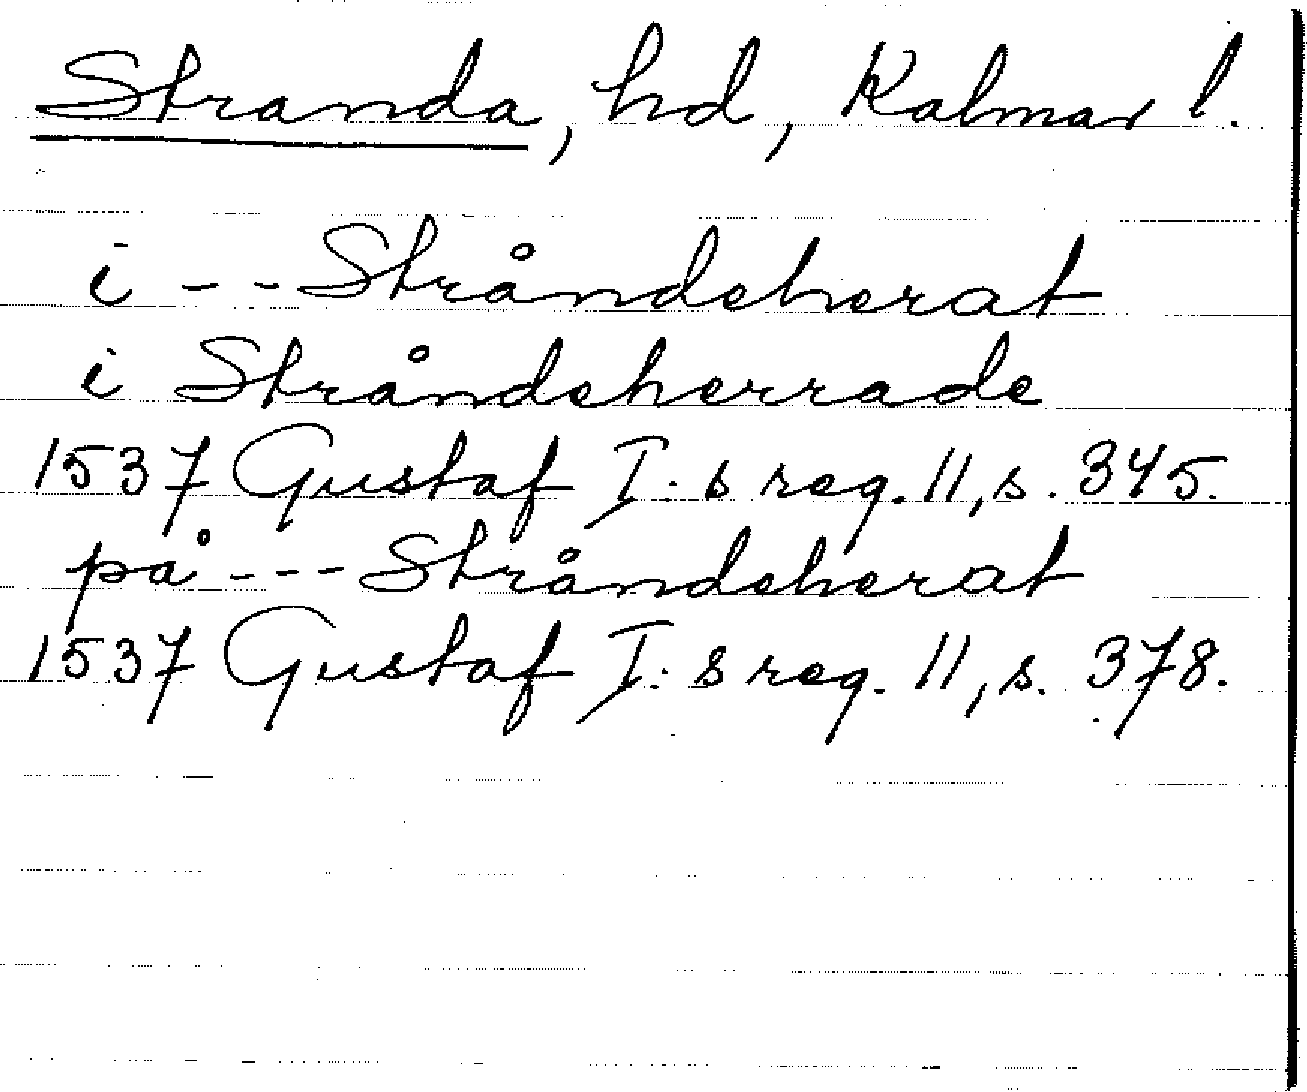 Stranda, hd, Kalmar l.
i --- Ströndeherat
i Ströndeherrade
1537 Gustaf I:s reg. 11, s. 345.
på --- Ströndeherat
1537 Gustaf I:s reg. 11, s. 378.